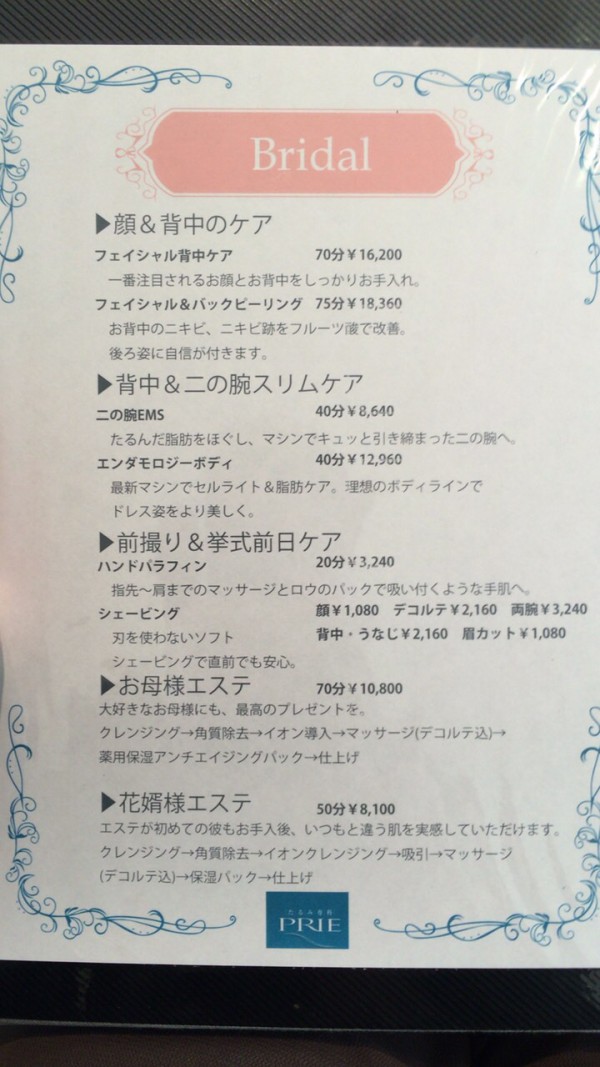 Bridal
▶顔＆背中のケア
フェイシャル背中ケア 70分￥16,200
一番注目されるお顔とお背中をしっかりお手入れ。
フェイシャル＆バックピーリング 75分￥18,360
お背中のニキビ、ニキビ跡をフルーツ酸で改善。
後ろ姿に自信が付きます。
▶背中＆二の腕スリムケア
二の腕EMS 40分￥8,640
たるんだ脂肪をほぐし、マシンでキュッと引き締まった二の腕へ。
エンダモロジーボディ 40分￥12,960
最新マシンでセルライト＆脂肪ケア。理想のボディラインで
ドレス姿をより美しく。
▶前撮り＆挙式前日ケア
ハンドパラフィン 20分￥3,240
指先～肩までのマッサージとロウのパックで吸い付くような手肌へ。
シェービング 顔￥1,080 デコルテ￥2,160 両腕￥3,240
刃を使わないソフト 背中・うなじ￥2,160 眉カット￥1,080
シェービングで直前でも安心。
▶お母様エステ 70分￥10,800
大好きなお母様にも、最高のプレゼントを。
クレンジング→角質除去→イオン導入→マッサージ(デコルテ込)→
薬用保湿アンチエイジングパック→仕上げ
▶花婿様エステ 50分￥8,100
エステが初めての彼もお手入後、いつもと違う肌を実感していただけます。
クレンジング→角質除去→イオンクレンジング→吸引→マッサージ
(デコルテ込)→保湿パック→仕上げ
たるみ専科
PRIE